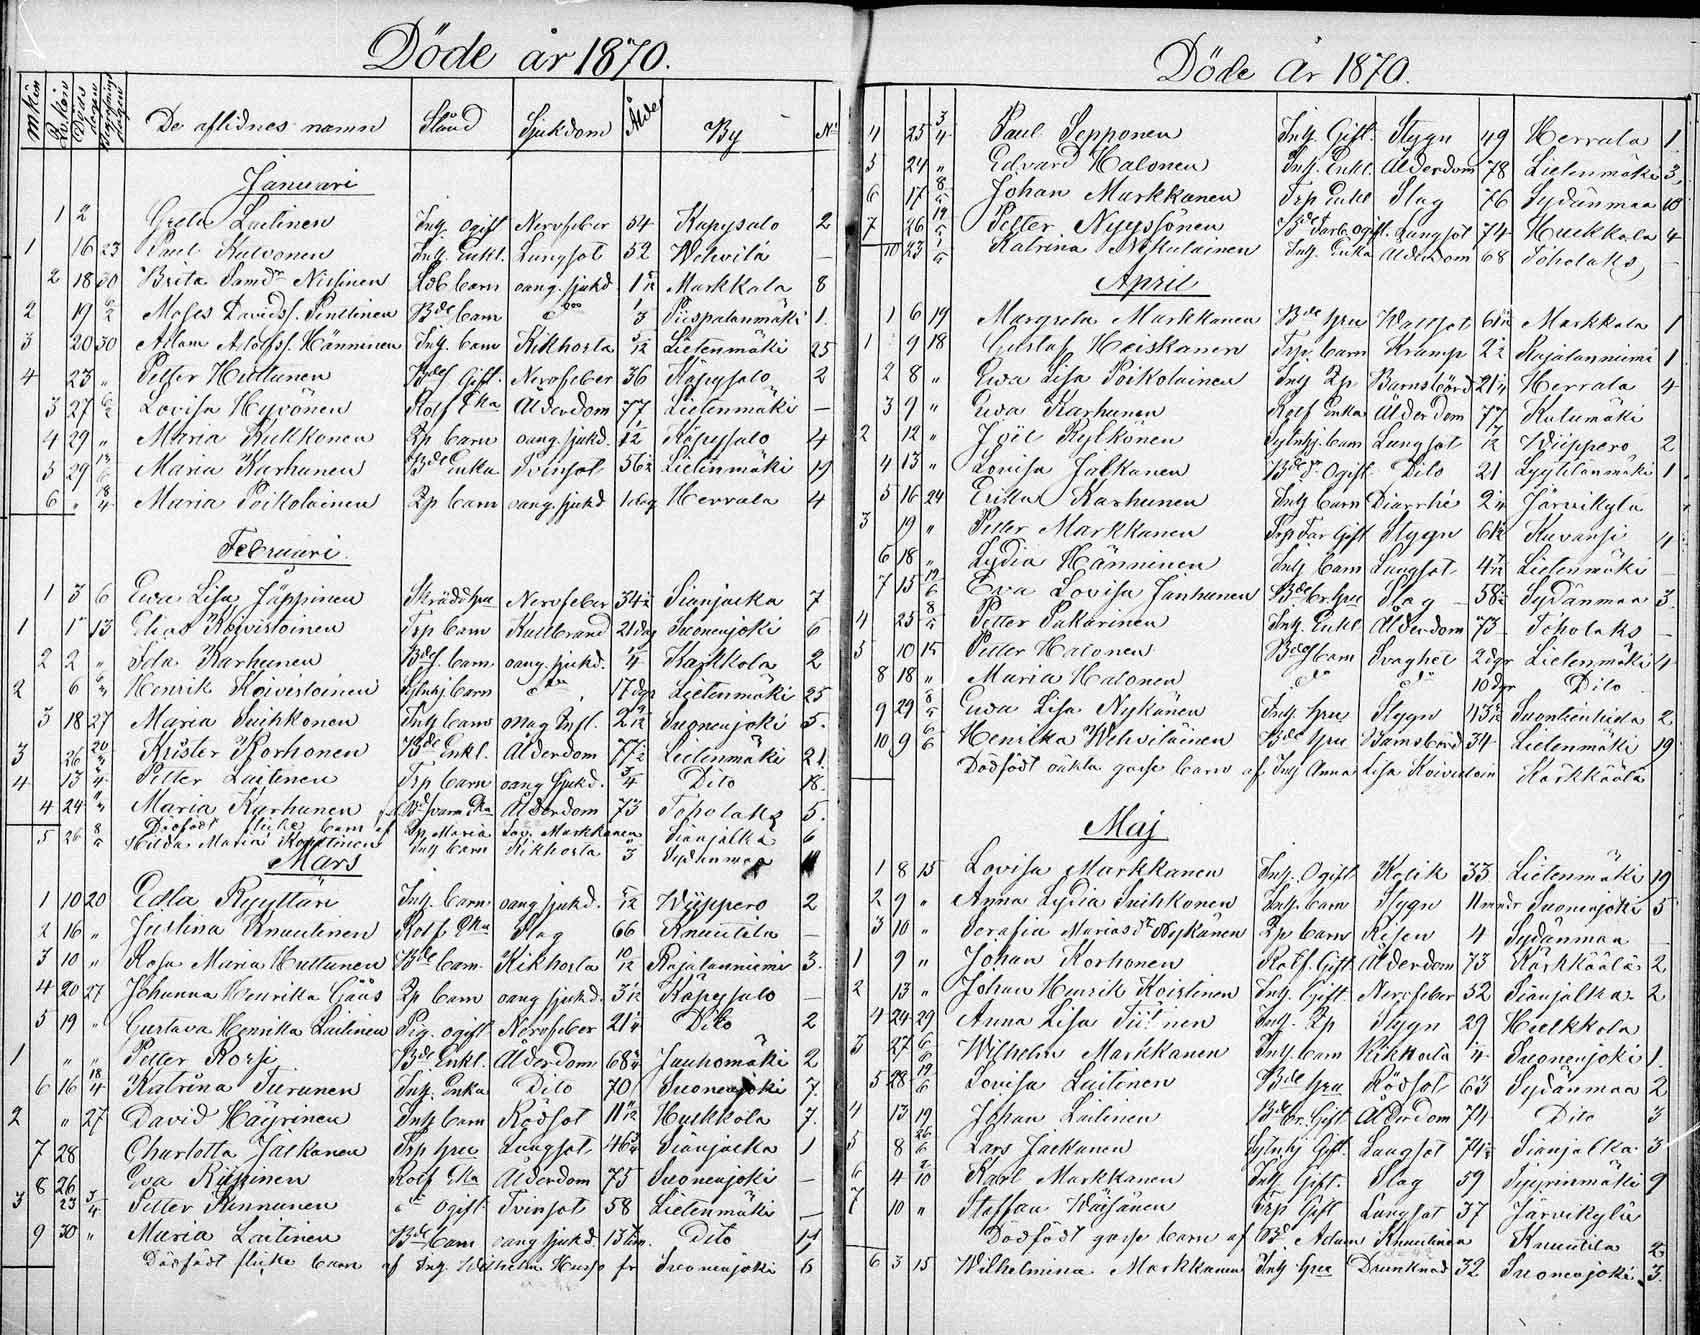 Döde år 1870.
m. kön Qv. kön Döds dagen Begrafnings dagen De aflidnes namn Stånd Sjukdom Ålder By No
Januari
1 2 Greta Laitinen Inh. ogift Nervfeber 54 Käpysalo 2
1 16 23 Paul Kutvonen Inh. Enkl. Lungsot 52 Wehvilä —
2 18 30 Brita Samdr Nissinen barn oang. sjukd. Markkala 8
2 19 Moses Davidss. Penttinen Bde barn Piispalanmäki 1.
3 20 30 Adam Adolfss. Hänninen Inh. barn Kikhosta Lietenmäki 25
4 23 " Petter Huttunen Gift. Nervfeber 36 Käpysalo 2
3 27 Lovisa Hyvönen Rotf Eka Ålderdom 77 Lietenmäki —
4 29 " Maria Kukkonen Qp barn oang. sjukd. Käpysalo 4
5 29 Maria Karhunen Bde Enka Tvinsot 56 Lietenmäki 19
6 " Maria Poikolainen Qp barn oang. sjukd 1 dag Herrala 4
Februari.
1 3 6 Ewa Lisa Jäppinen Nervfeber 34 Sianjalka 7
1 1 13 Elias Koivistoinen Trp barn Kallbrand 21 dag Suonenjoki 6
2 2 " Ida Karhunen Bdes. barn oang. sjukd. Kärkkölä 2
2 6 Henrik Koivistoinen barn 17 dgr Lietenmäki 25
3 18 27 Maria Suihkonen Inh barn 2 Suonenjoki 5.
3 26 Krister Korhonen Bde Enkl. Ålderdom 77 Lietenmäki 21.
4 13 Petter Laitinen Trp barn oang sjukd. Dito 18.
4 24 Maria Karhunen Ålderdom 73 Toholaks 5.
Dödfödt flicke barn af Qp Maria Lov. Markkanen Sianjalka 6
5 26 Hilda Maria Inh barn Kikhosta Sydänmaa
Mars
1 10 20 Edla Ryyttäri Inh. barn oang sjukd. Wyppero 2
2 16 " Justina Knuutinen Rotf Eka Slag 66 Knuutila —
3 10 " Rosa Maria Huttunen Bde barn. Kikhosta Rajalanniemi 3.
4 20 27 Johanna Henrika Gäås Qp barn oang sjukd. Käpysalo —
5 19 " Gustava Henrika Laitinen Pig. ogift Nervfeber 21 Dito 2
1 " " Petter Rossi Bde Enkl. Ålderdom 68 Jauhomäki 2
6 16 Katrina Turunen Inh. Enka Dito 70 Suonenjoki 7.
2 " 27 David Häyrinen Inh barn Rödsot 11 Hulkkola 7.
7 28 Charlotta Jalkanen Trp hru Lungsot 46 Sianjalka 1
8 26 Eva Riipinen Rotf Eka Ålderdom 75 Suonenjoki —
3 23 Petter Kinnunen Ogift Tvinsot 58 Lietenmäki —
9 30 " Maria Laitinen Bde barn oang sjukd. 13 Dito 14
Dödfödt flicke barn af Inh. Wilhelm Suonenjoki 6
Döde År 1870.
4 25 Paul Sepponen Inh. Gift. Stygn 49 Herrala 1
5 24 " Edvard Halonen Inh. Enkl. Ålderdom 78 Lietenmäki 3
6 17 Johan Markkanen Trp Enkl Slag 76 Sydänmaa 10
7 26 Petter Nyyssönen ogift. Lungsot 74 Hulkkola 4
10 23 Katrina Nykulainen Inh. Enka Ålderdom 68 Toholaks —
April
1 6 19 Margreta Markkanen Bde hru Wattsot 61 Markkala 1
1 9 18 Gustaf Heiskanen Trp. barn Kramp 2 Rajalanniemi 1
2 8 " Ewa Lisa Poikolainen Inh Qp Barnsbörd 21 Herrala 4
3 9 " Ewa Karhunen Rotf Enka Ålderdom 77 Kulumäki
2 12 " Joel Kylkönen barn Lungsot Wiippero 2
4 13 " Lovisa Jalkanen Ogift Dito 21 Lyytilänmäki 1
5 16 24 Erika Karhunen Inh barn Diarrhé 2 Järvikylä
3 19 " Petter Markkanen Gift Stygn 61 Kuvansi 4
6 18 " Lydia Hänninen Inh barn Lungsot 4 Lietenmäki —
7 15 Eva Lovisa Janhunen hru Slag 58 Sydänmaa 3
4 25 Petter Pakarinen Inh. Enkl Ålderdom 73 Toholaks —
5 10 15 Petter Halonen Bdes barn Svaghet 2 dgr Lietenmäki 4
8 18 " Maria Halonen do do 10 dgr Dito
9 29 Ewa Lisa Nykänen Inh. hru Stygn 43 Suontientaida 2
10 9 Henrika Wehviläinen Bde hru Barnsbörd 34 Lietenmäki 19
Dödfödt oäkta gosse barn af Inh Anna Lisa Koivistoin Kärkkäälä
Maj
1 8 15 Lovisa Markkanen Inh. Ogift Kolik 33 Lietenmäki 19
2 9 " Anna Lydia Suihkonen Inh. barn Stygn 11 mndr Suonenjoki 5
3 10 " Serafia Mariasdr Nykänen Qp barn Risen 4 Sydänmaa
1 9 " Johan Korhonen Rotf. Gift Ålderdom 73 Kärkkäälä 2
2 13 " Johan Henrik Koistinen Inh. Gift Nervfeber 52 Sianjalka 2
4 24 29 Anna Lisa Inh. Qp Stygn 29 Hulkkola
3 27 Wilhelm Markkanen Inh. barn Kikhosta Suonenjoki 1.
5 28 Lovisa Laitinen Bde hru Rödsot 63 Sydänmaa 2
4 13 19 Johan Laitinen Gift Ålderdom 74 Dito 3
5 8 Lars Jalkanen Gift. Lungsot 74 Sianjalka 3
6 4 Karl Markkanen Inh. Gift. Slag 59 Tyyrinmäki 9
7 10 " Staffan Wäisänen Trp Gift Lungsot 37 Järvikylä
Dödfödt gosse barn af Bde Adam Knuutinen Knuutila 2
6 3 15 Wilhelmina Markkanen Inh hru Drunknad 32 Suonenjoki 3.